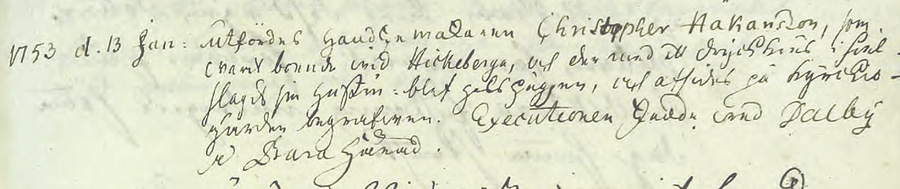 1753 d. 13 Jan: utfördes Handskemakaren Christopher Håkansson, som
warit boende wid Häckeberga, och der med ett dryckhus ihiel
slagit sin hustru: blef halshuggen, och afsides på kyrckio-
gården begrafwen. Executionen skedde wid Dalby
i Bara Härad.